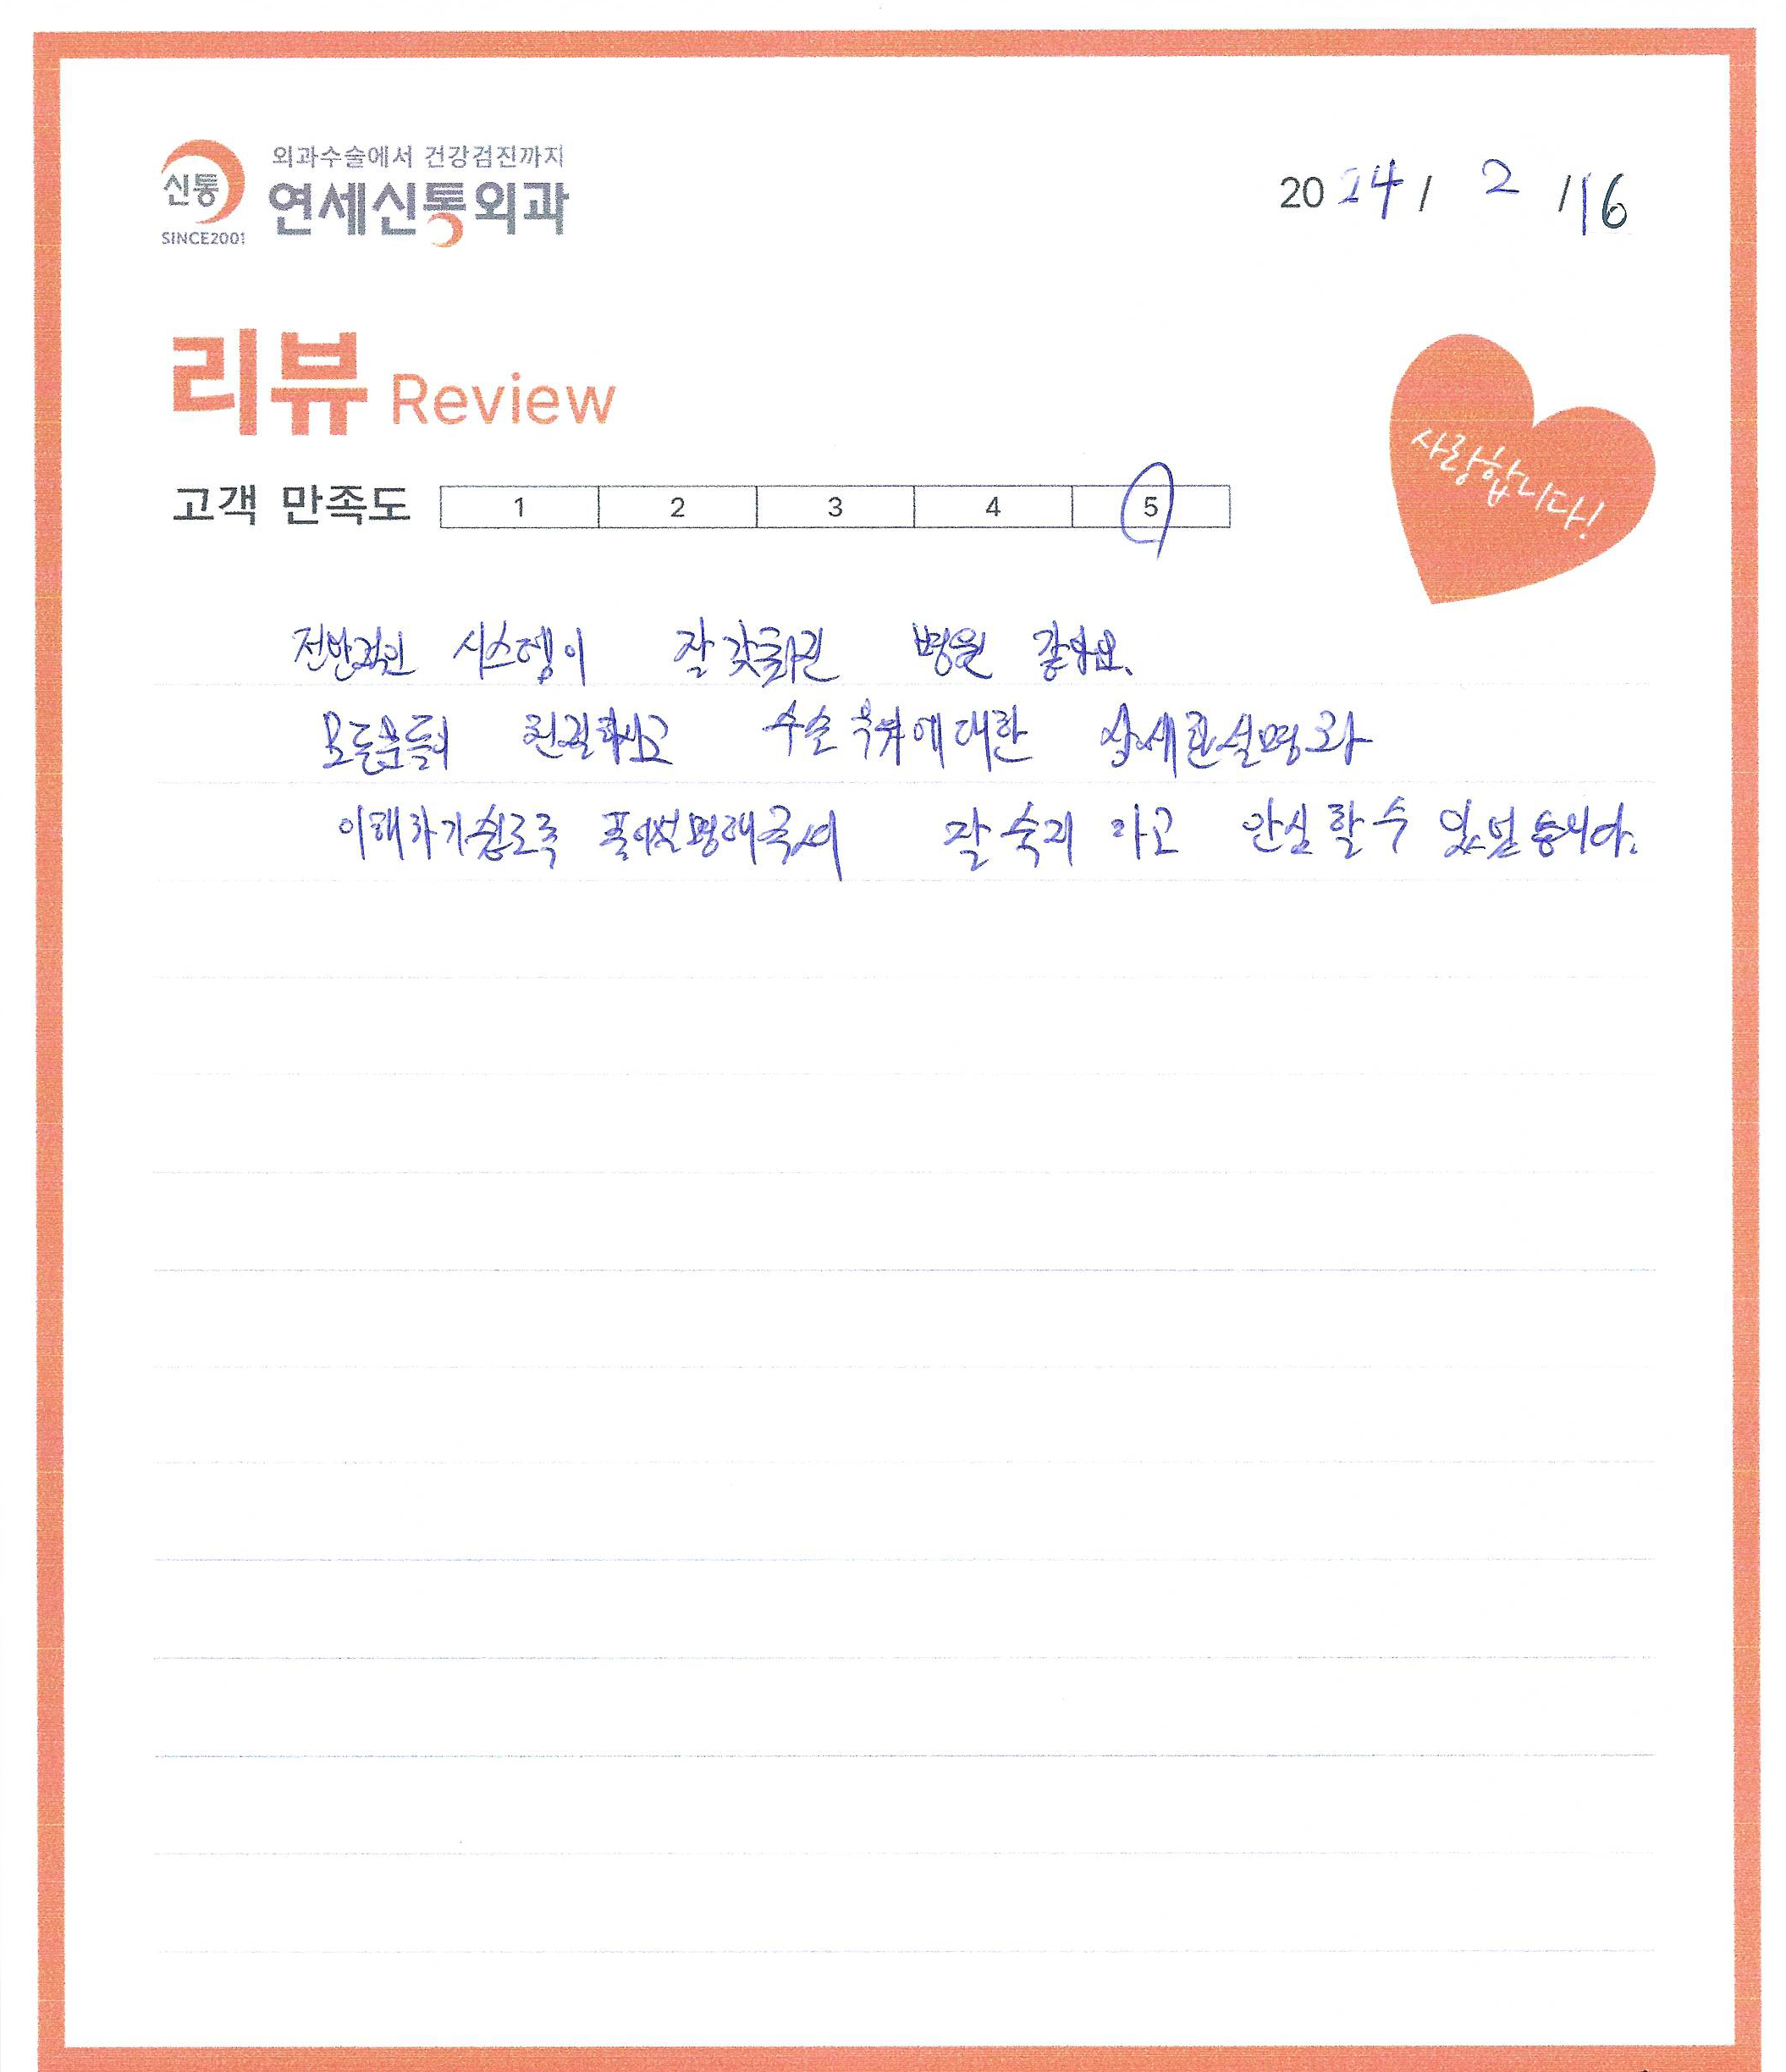 외과수술에서 건강검진까지
신통
연세신통외과
SINCE2001
2024 / 2 / 16
리뷰 Review
사랑합니다!
고객 만족도 1 2 3 4 5
전반적인 시스템이 잘갖춰진 병원 같아요.
모든분들이 친절하시고 수술 부위에대한 상세한설명과
이해하기쉽도록 풀어설명해주셔서 잘 숙지 하고 안심 할 수 있었습니다.